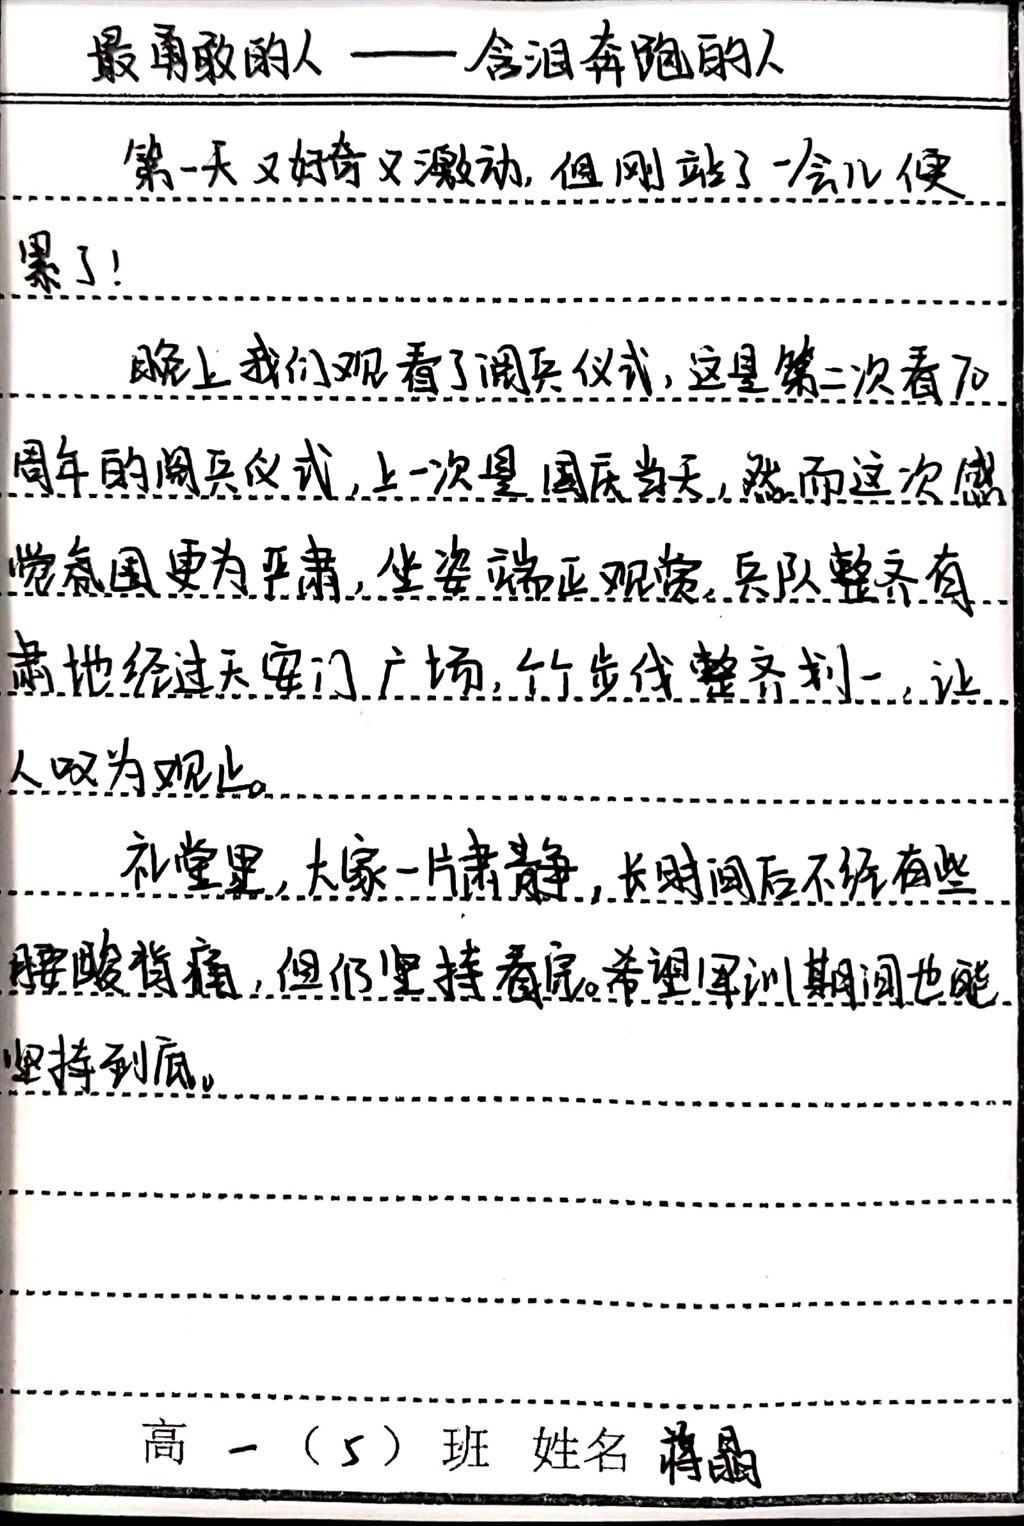 最勇敢的人——含泪奔跑的人
第一天又好奇又激动,但刚站了一会儿便
累了!
晚上我们观看了阅兵仪式,这是第二次看70
周年的阅兵仪式,上一次是国庆当天,然而这次感
觉氛围更为严肃,坐姿端正观赏。兵队整齐有
肃地经过天安门广场,个个步伐整齐划一,让
人叹为观止。
礼堂里,大家一片肃静,长时间后不经有些
腰酸背痛,但仍坚持看完。希望军训期间也能
坚持到底。
高一(5)班 姓名 蒋晶